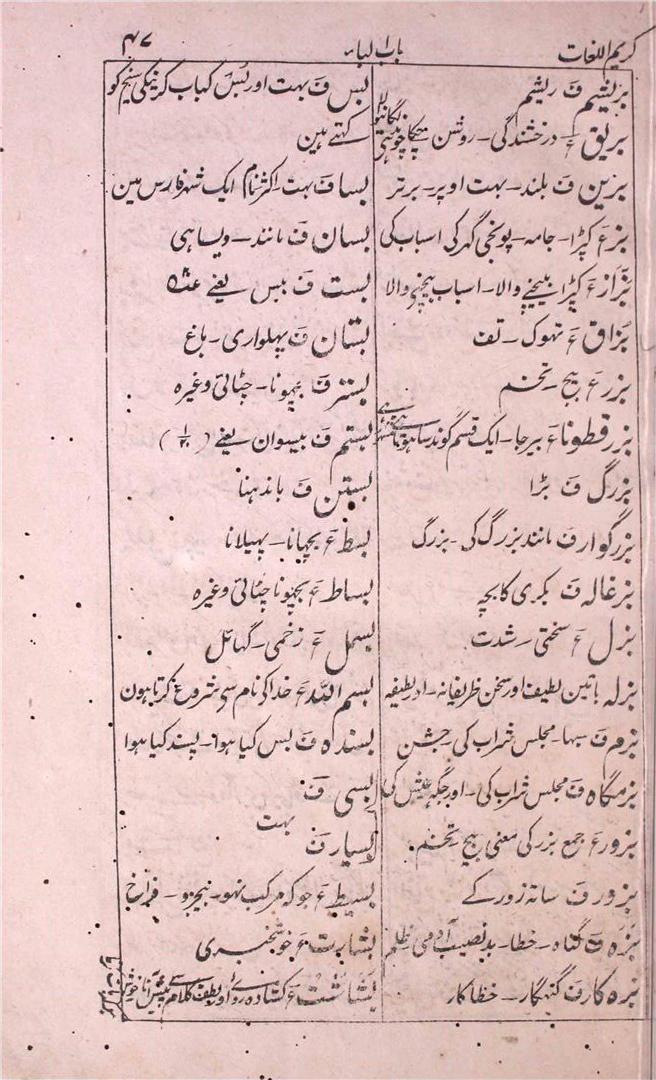 کریم اللغات
باب الباء
۴۷
بریشم ف ریشم
بریق ع درخشندگی۔ روشن
بزین ف بلند۔ بہت اوپر۔ برتر
بز ع کپڑا۔ جامہ۔ پونجی گہر کی اسباب کی
بزّاز ع کپڑا بیچنے والا۔ اسباب بیچنے والا
بزاق ع تہوک۔ تف
بزر ع بیج۔ تخم
بزر قطونا ع بیرجا۔ ایک قسم گوند سا ہوتا ہے
بزرگ ف بڑا
بزرگوار ف مانند بزرگ کی۔ بزرگ
بزغالہ ف بکری کا بچہ
بزل ع سختی۔ شدت
بزلہ باتین لطیف اور سخن ظریفانہ۔ اد لطیفہ
بزم ف سبہا۔ مجلس شراب کی۔ جشن
بزمگاہ ف مجلس شراب کی۔ اور جگہ عیش کی
بزور ع جمع بزر کی معنی بیج تخم۔
بزور ف ساتہ زور کے
بزہ ف گناہ۔ خطا۔ بد نصیب آدمی ظلم
بزہ کار ف گنہگار۔ خطا کار
بس ف بہت اور بس کباب کرنیکی سیخ کو
کہتے ہین
بسا ف بہت۔ اکثر نام ایک شہر فارس مین
بسان ف مانند۔ ویسا ہی
بست ف بیس یعنے
بستان ف پہلواری۔ باغ
بستر ف بچہونا۔ چٹائی وغیرہ
بستم ف بیسوان یعنے (۱/۲۰)
بستن ف باندہنا
بسط ع بچہانا۔ پہیلانا
بساط ع بچہونا چٹائی وغیرہ
بسمل ع زخمی۔ گہائل
بسم اللہ ع خدا کی نام سی شروع کرتا ہون
بسندہ ف بس کیا ہوا۔ پسند کیا ہوا
بسی ف
بہت
بسیار ف
بسیط ع جو کہ مرکب نہو۔ نیچیزو۔ فراخ
بشارت ع خوشخبری
بشاشت ع کشادہ روئی اور لطف کلام سے پیش آنا خوش